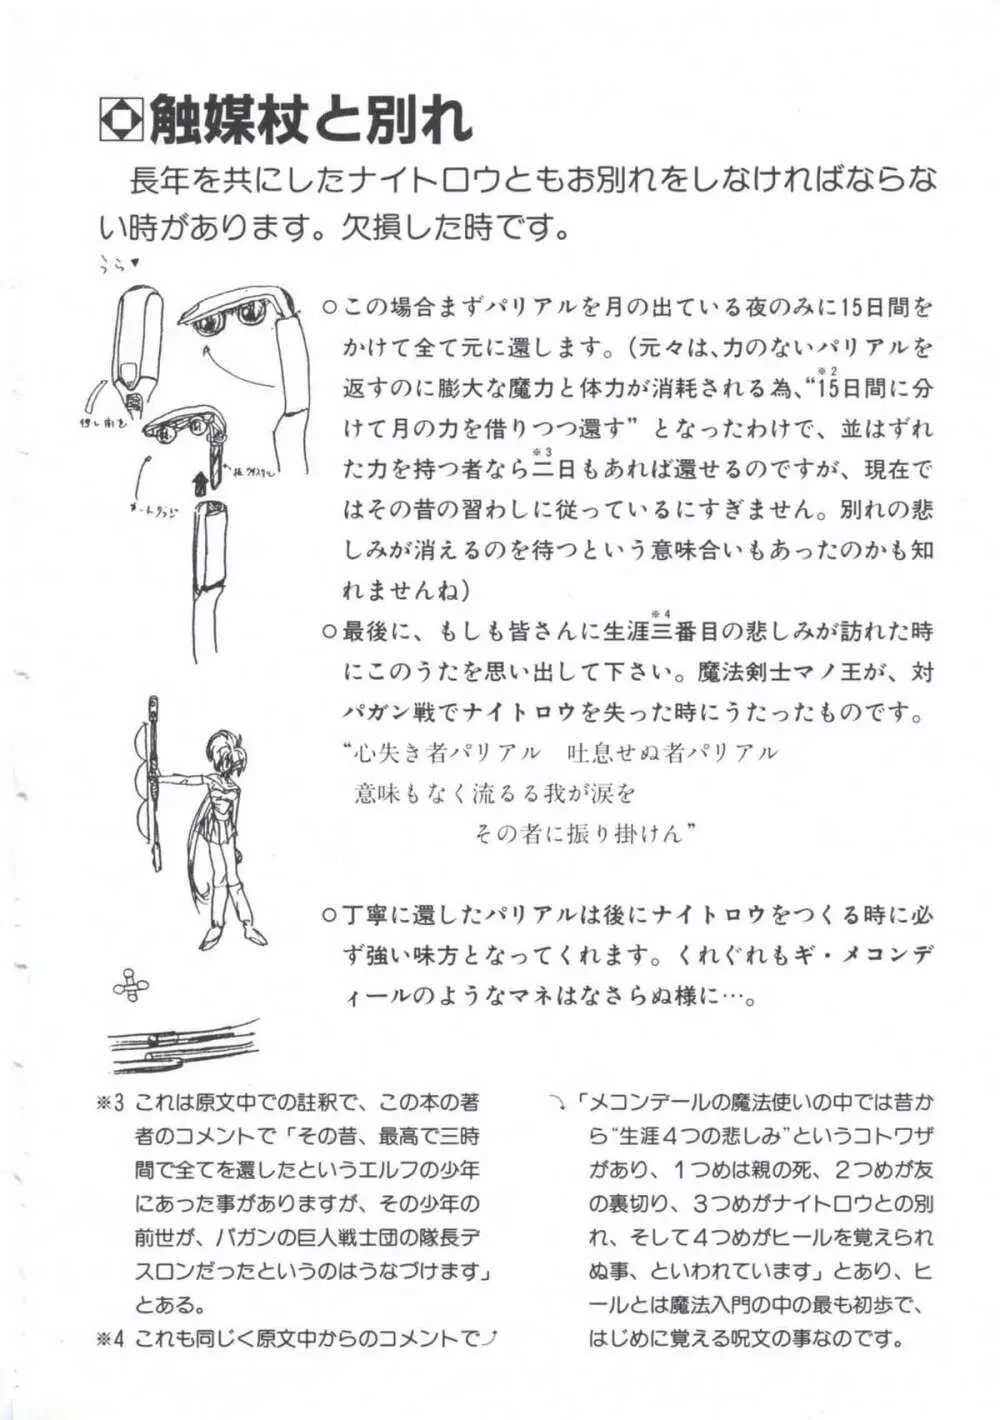 触媒杖と別れ
長年を共にしたナイトロウともお別れをしなければならな
い時があります。欠損した時です。
うら♥
○この場合まずパリアルを月の出ている夜のみに15日間を
かけて全て元に還します。(元々は、力のないパリアルを
返すのに膨大な魔力と体力が消耗される為、“15日間に分
※2
けて月の力を借りつつ還す”となったわけで、並はずれ
た力を持つ者なら二日もあれば還せるのですが、現在で
※3
はその昔の習わしに従っているにすぎません。別れの悲
しみが消えるのを待つという意味合いもあったのかも知
れませんね)
○最後に、もしも皆さんに生涯三番目の悲しみが訪れた時
※4
にこのうたを思い出して下さい。魔法剣士マノ王が、対
パガン戦でナイトロウを失った時にうたったものです。
“心失き者パリアル 吐息せぬ者パリアル
意味もなく流るる我が涙を
その者に振り掛けん”
○丁寧に還したパリアルは後にナイトロウをつくる時に必
ず強い味方となってくれます。くれぐれもギ・メコンデ
ィールのようなマネはなさらぬ様に…。
※3 これは原文中での註釈で、この本の著
者のコメントで「その昔、最高で三時
間で全てを還したというエルフの少年
にあった事がありますが、その少年の
前世が、バガンの巨人戦士団の隊長デ
スロンだったというのはうなづけます」
とある。
※4 これも同じく原文中からのコメントで
「メコンデールの魔法使いの中では昔か
ら“生涯4つの悲しみ”というコトワザ
があり、1つめは親の死、2つめが友
の裏切り、3つめがナイトロウとの別
れ、そして4つめがヒールを覚えられ
ぬ事、といわれています」とあり、ヒ
ールとは魔法入門の中の最も初歩で、
はじめに覚える呪文の事なのです。